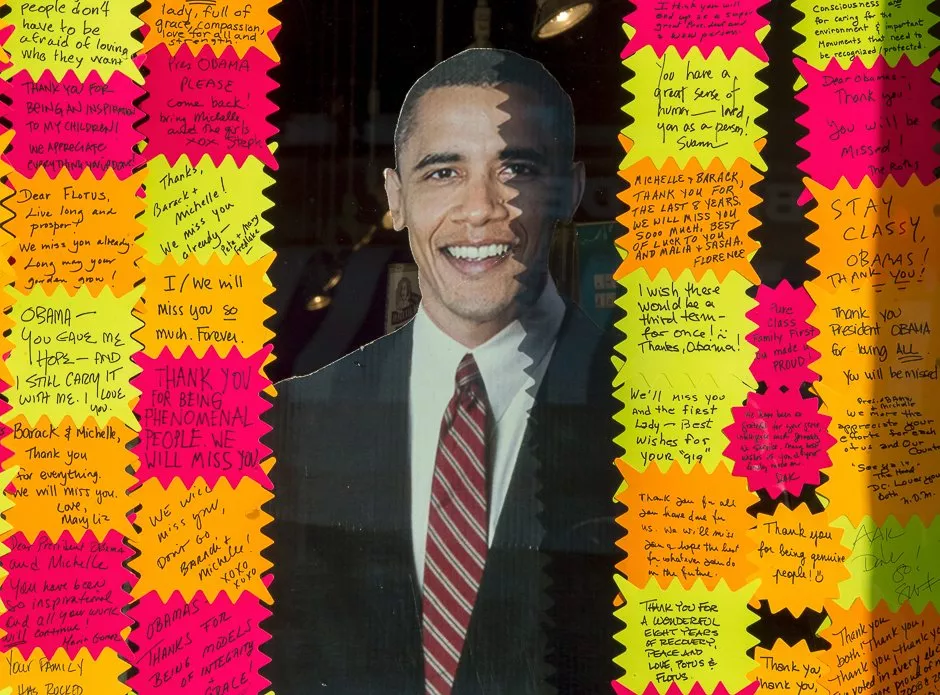 people don't
have to be
afraid of loving
who they want
THANK YOU FOR
BEING AN INSPIRATION
TO MY CHILDREN!
WE APPRECIATE
EVERYTHING YOU'VE DONE!
DEAR FLOTUS,
Live long and
prosper!
We miss you already.
Long may your
garden grow!
OBAMA —
YOU GAVE ME
HOPE — AND
I STILL CARRY IT
WITH ME. I LOVE
YOU.
Barack & Michelle,
Thank you
for everything.
We will miss you.
Love,
Mary Liz
Dear President Obama
and Michelle
You have been
so inspirational
and all your work
will continue!
YOUR FAMILY
HAS ROCKED
lady, full of
grace, compassion,
love for all and
strength.
Pres OBAMA
PLEASE
come back!
bring Michelle,
and the girls
xoxo Steph
Thanks,
Barack +
Michelle!
We miss you
already.
I/we will
miss you so
much. Forever.
THANK YOU
FOR BEING
PHENOMENAL
PEOPLE. WE
WILL MISS YOU
WE WILL
MISS YOU,
DON'T GO
BARACK +
MICHELLE!
XOXO
XOXO
OBAMAS
THANKS FOR
BEING MODELS
OF INTEGRITY
&
GRACE
I think you will
great President and
a wow person.
You have a
great sense of
humor — loved
you as a person.
Suann
MICHELLE & BARACK,
THANK YOU FOR
THE LAST 8 YEARS.
WE WILL MISS YOU
SOOO MUCH. BEST
OF LUCK TO YOU
AND MALIA & SASHA.
FLORENCE
I wish there
would be a
third term —
for once! :)
Thanks, Obama!
We'll miss you
and the first
Lady — Best
wishes for
your "gig"
Thank you for all
you have done for
us. We will miss
you & hope the best
for whatever you do
in the future.
THANK YOU FOR
A WONDERFUL
EIGHT YEARS
OF RECOVERY,
PEACE AND
LOVE, POTUS &
FLOTUS
Pure
Class
Family First
You made us
PROUD!
Thank you
for being genuine
people!
Thank you,
thank you,
Consciousness and
for caring for the
environment & important
Monuments that need to
be recognized/protected.
Dear Obamas –
Thank you!
You will be
Missed!
STAY
CLASSY,
OBAMAS!
THANK YOU!
Thank you
President OBAMA
for being ALL
You will be missed
Pres. OBAMA
& Michelle
We more the
appreciate your
efforts for each
of us and our
Country
DC. Loves you
both
Thank you
both! Thank you,
Thank you, Thank you